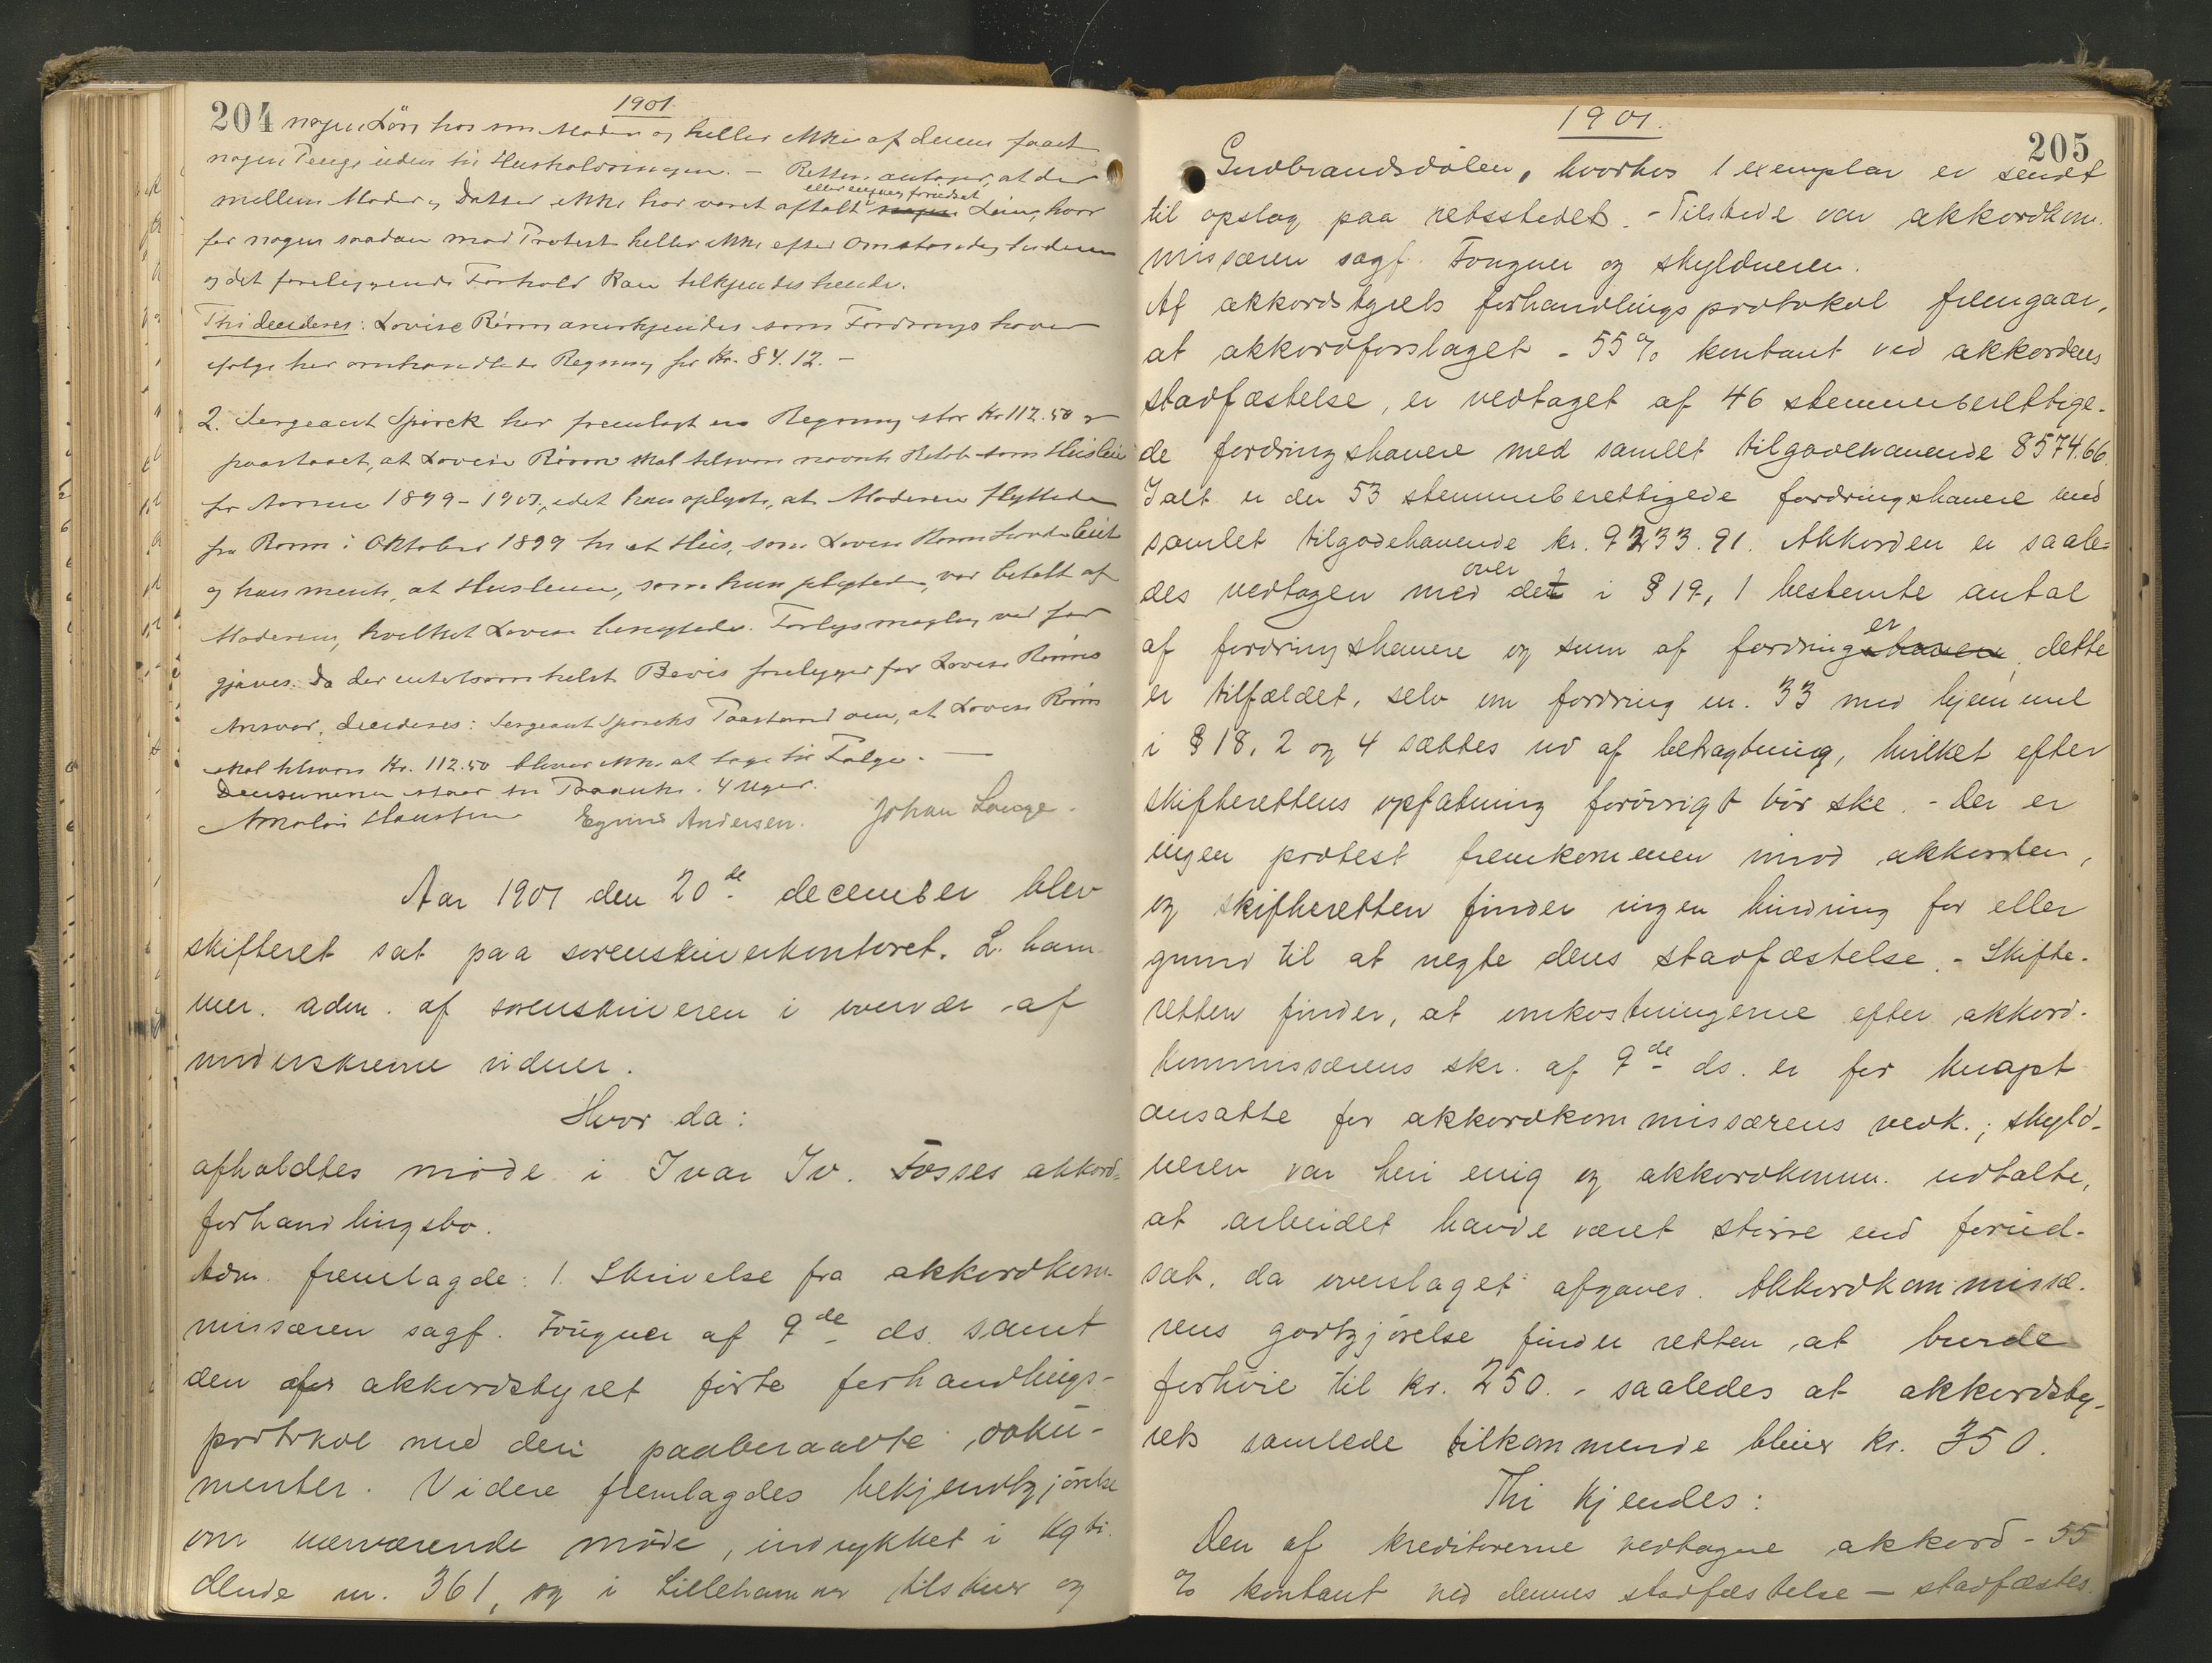 1901.
204 nogen Løn hos sin Moder og heller ikke af denne faaet
nogen Penge uden til Husholdningen. - Retten antager, at der
eller engang forudsat
mellem Moder og Datter ikke har været aftalt nogen Løn, hvor
for nogen saadan mod Protest heller ikke efter Omstændighederne
og det foreliggende Forhold kan tilkjendes hende.
Thi decideres: Lovise Rømm anerkjendes som Fordringshaver
ifølge her omhandlede Regning for Kr. 84.12. -
2. Sergeant Spørck har fremlagt en Regning stor Kr 112.50 og
paastaaet, at Lovise Rømm skal tilsvare nævnte Beløb som Husleie
for Aarene 1899-1901, idet han oplyste, at Moderen flyttede
fra Romm i Oktober 1899 til et Hus, som Lovise Romm havde leiet
og han mente, at Huslejen, som hun pligtede, var betalt af
Moderen, hvilket Lovise benegtede. Forligsmægling var for
gjæves. Da der intetsomhelst Bevis foreligger for Lovise Rømms
Ansvar, decideres: Sergeant Spørcks Paastand om, at Lovise Rømm
skal tilsvare Kr. 112.50 bliver ikke at tage til Følge. -
Decisionerne staar til Paaanke i 4 Uger.
Egvind Andersen. Johan Lange.
Aar 1901 den 20de december blev
skifteret sat paa sorenskriverkontoret. L. ham-
mer. adm. af sorenskriveren i overvær af
underskrevne vidner.
Hvor da:
afholdtes møde i Ivar Iv. Fosses akkord-
forhandlingsbo.
Adm. fremlagde: 1. Skrivelse fra akkordkom-
missæren sagf. Fougner af 9de ds. samt
den af akkordstyret førte forhandlings-
protokol med deri paaberaabte doku-
menter. Videre fremlagdes bekjendtgjørelse
om nærværende møde, indrykket i Kgti-
dende nr. 361, og i Lillehammer tilskuer og
1901.
205
Gudbrandsdølen, hvorhos 1 exemplar er sendt
til opslag paa retsstedet. - Tilstede var akkordkom-
missæren sagf. Fougner og skyldneren.
Af akkordstyrets forhandlingsprotokol fremgaar,
at akkordforslaget - 55 % kontant ved akkordens
stadfæstelse, er vedtaget af 46 stemmeberettige-
de fordringshavere med samlet tilgodehavende 8574.66.
Ialt er der 53 stemmeberettigede fordringshavere med
samlet tilgodehavende kr. 9233.91. Akkorden er saale-
over
des vedtagen med det i § 19, 1 bestemte antal
er
af fordringshavere og sum af fordringshavere, dette
er tilfældet, selv om fordring nr. 33 med hjemmel
i § 18, 2 og 4 sættes ud af betragtning, hvilket efter
skifterettens opfatning forøvrigt bør ske. - Der er
ingen protest fremkommen mod akkorden,
og skifteretten finder ingen hindring for eller
grund til at negte dens stadfæstelse. - Skifte-
retten finder, at omkostningerne efter akkord-
kommissærens skr. af 9de ds. er for knapt
ansatte for akkordkommissærens vedk.; skyld-
neren var heri enig og akkordkomm. udtalte,
at arbeidet havde været større end forud-
sat, da overslaget afgaves. Akkordkommissæ-
rens godtgjørelse finder retten at burde
forhøie til kr. 250. - saaledes at akkordsty-
rets samlede tilkommende bliver kr. 350.
Thi kjendes:
Den af kreditorerne vedtagne akkord - 55
% kontant ved dennes stadfæstelse - stadfæstes.